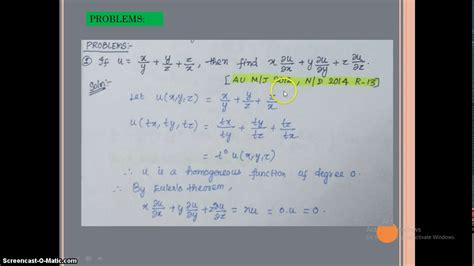 PROBLEMS:
PROBLEMS:-
① If u = x/y + y/z + z/x, then find x ∂u/∂x + y ∂u/∂y + z ∂u/∂z.
[AU M/J 2012, N/D 2014 R-13]
Soln:-
Let u(x,y,z) = x/y + y/z + z/x
u(tx, ty, tz) = tx/ty + ty/tz + tz/tx
= t⁰ u(x,y,z)
∴ u is a homogeneous function of degree 0.
∴ By Euler's theorem,
x ∂u/∂x + y ∂u/∂y + z ∂u/∂z = nu = 0.u = 0.
Screencast-O-Matic.com